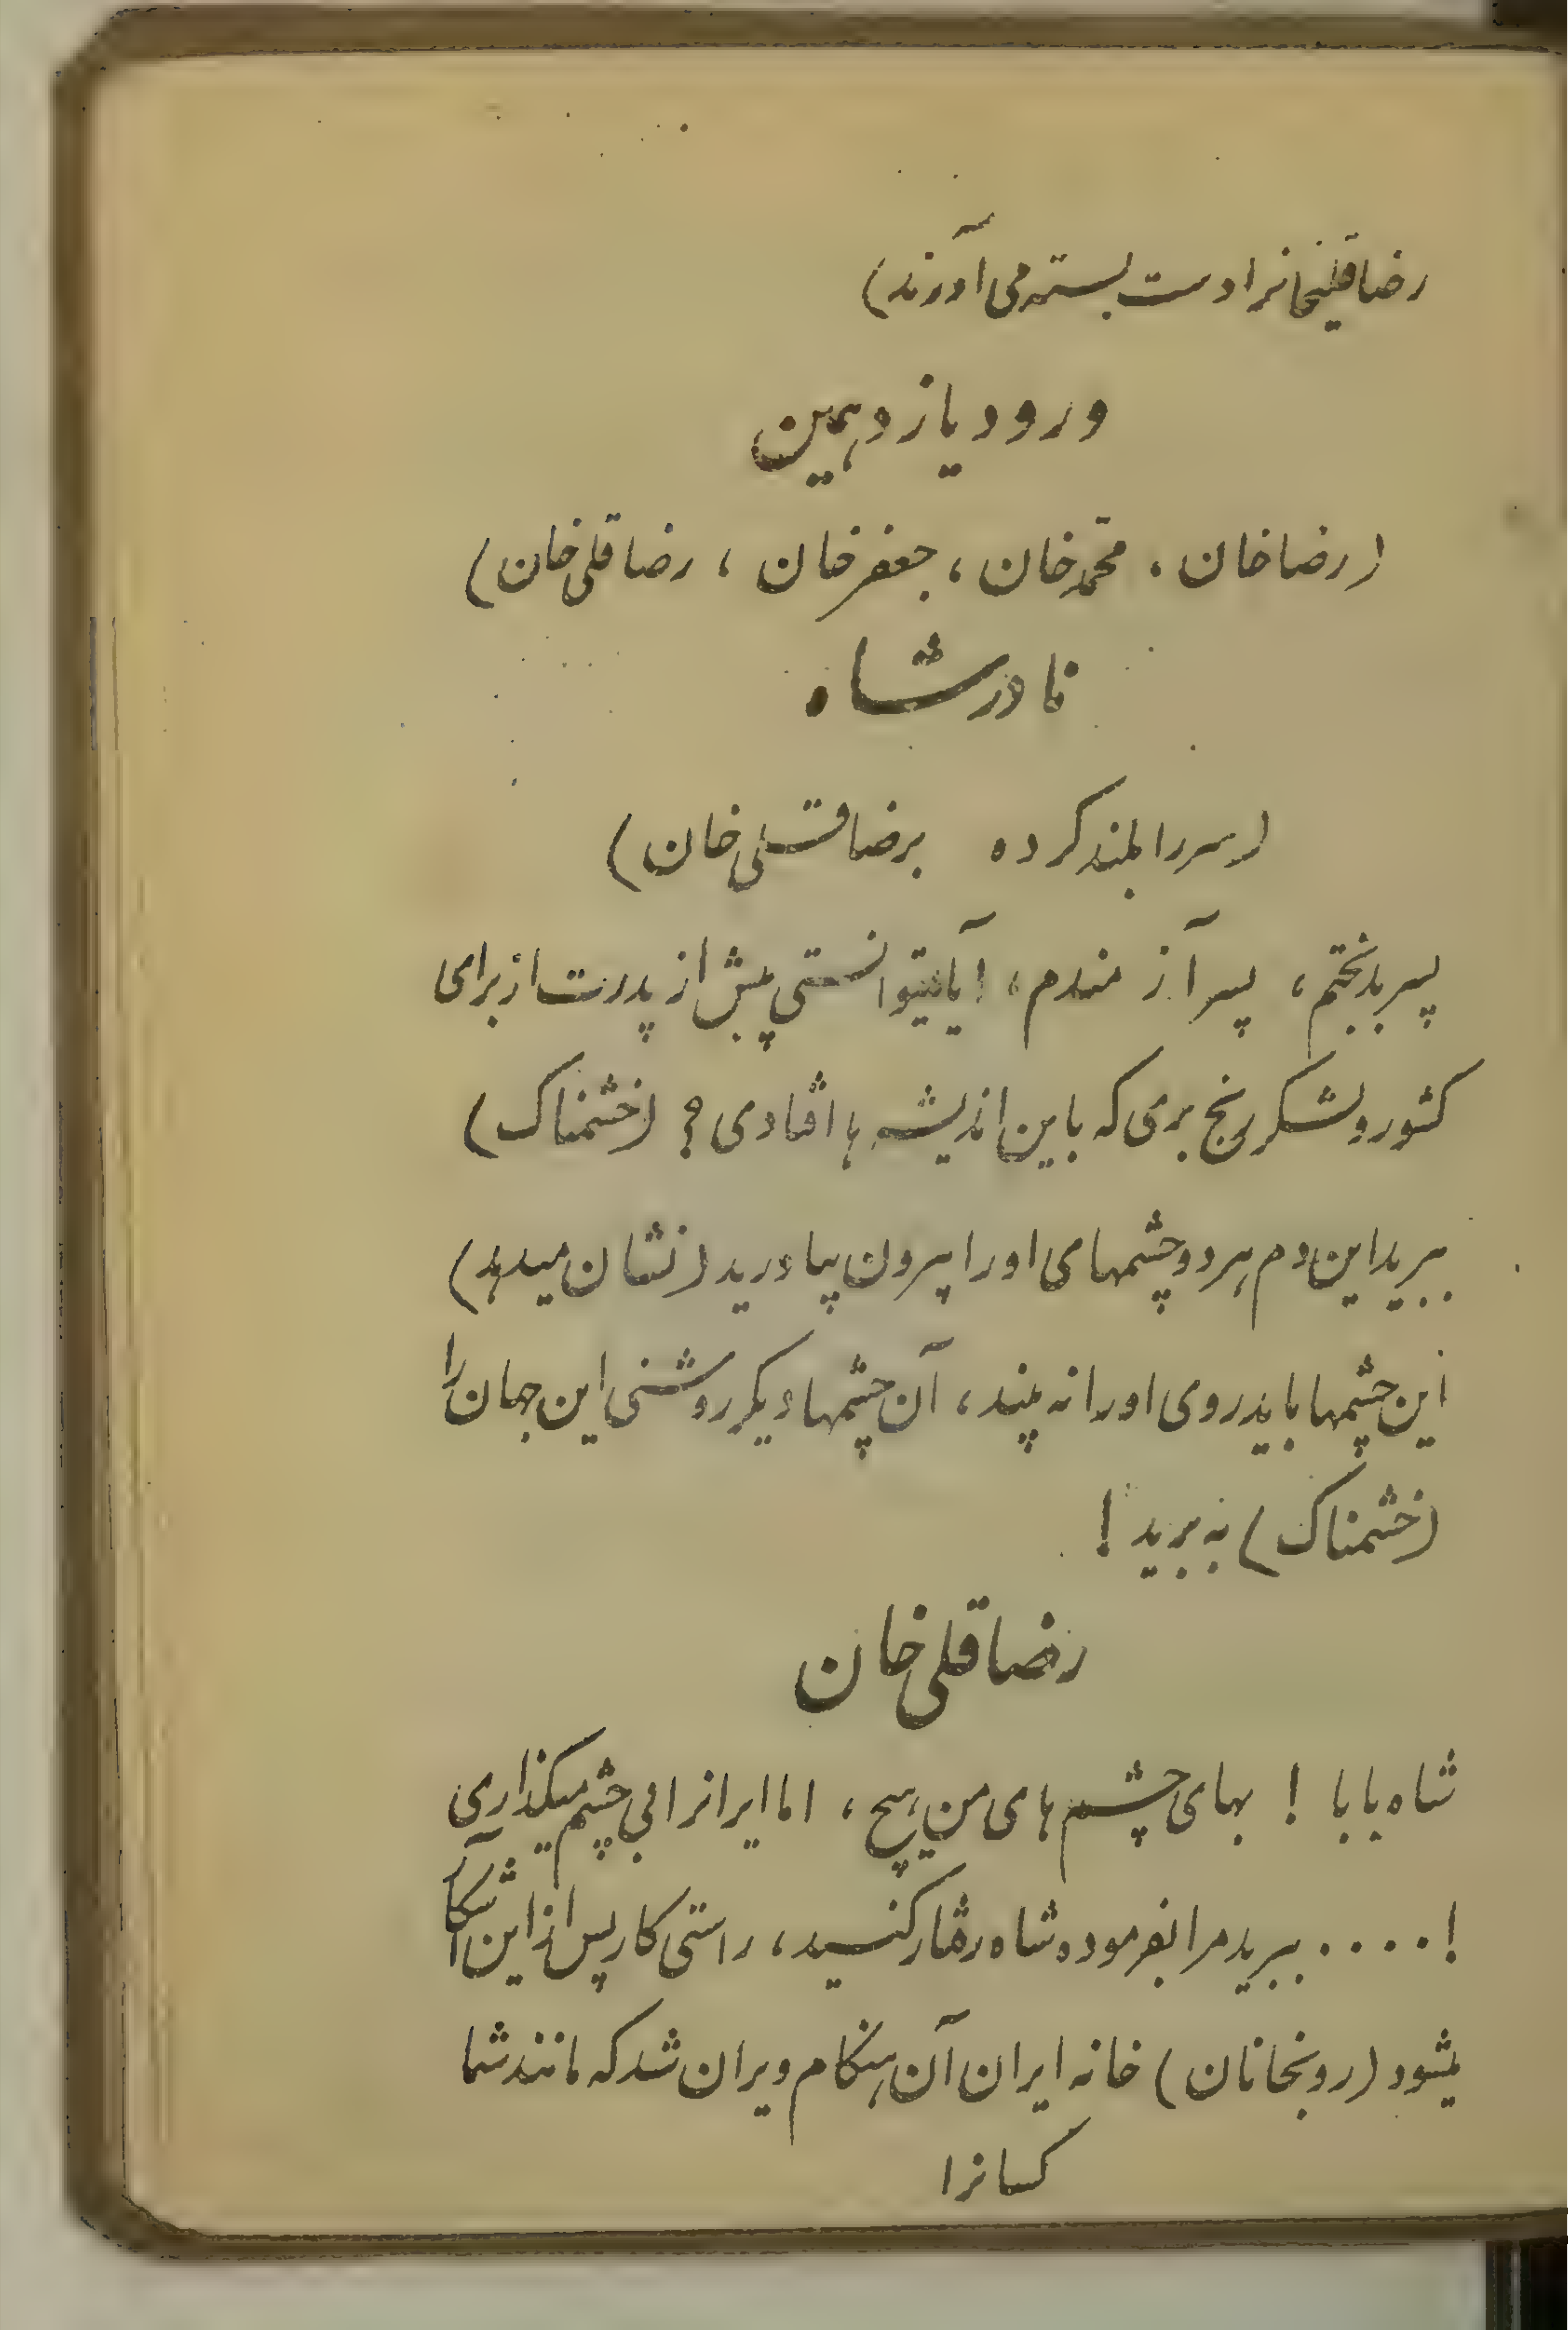 رضاقلیخانرا دست بسته می آورند)
ورود یازدهمین
(رضاخان، محمدخان، جعفرخان، رضاقلی خان)
نادرشاه
(سررا بلند کرده برضاقلی خان)
پسر بدبختم، پسر آزمندم، آیا نمیتوانستی پیش از پدرت از برای
کشور ولشکر رنج بری که باین اندیشه ها افتادی؟ (خشمناک)
ببرید این دم هر دو چشمهای اورا بیرون بیاورید (نشان میدهد)
این چشمها باید روی اورا نه بیند، آن چشمها دیگر روشنی این جهان را
(خشمناک) به برید!
رضاقلی خان
شاه بابا! بهای چشم های من هیچ، اما ایرانرا بی چشم میگذاری
!.... ببرید مرا بفرموده شاه رفتار کنید، راستی کار پس از این آشکار
میشود (روبخانان) خانه ایران آن هنگام ویران شد که مانند شما
کسانرا